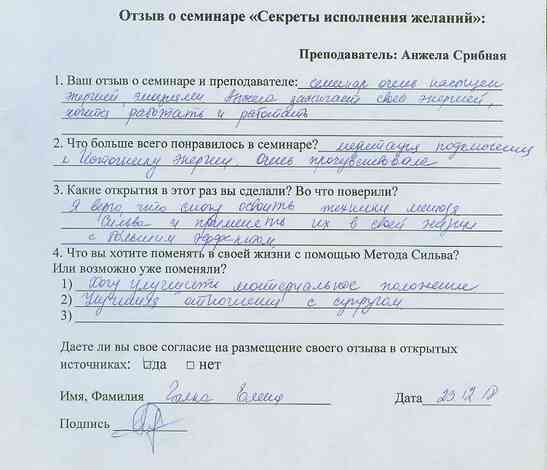 Отзыв о семинаре «Секреты исполнения желаний»:
Преподаватель: Анжела Срибная
1. Ваш отзыв о семинаре и преподавателе: семинар очень насыщен
энергией, знаниями Анжела зажигает своей энергией,
хочется работать и работать
2. Что больше всего понравилось в семинаре? медитация подключения
к Источнику Энергии. Очень прочувствовала
3. Какие открытия в этот раз вы сделали? Во что поверили?
Я верю, что смогу освоить техники метода
Сильва и применять их в своей жизни
с большим эффектом
4. Что вы хотите поменять в своей жизни с помощью Метода Сильва?
Или возможно уже поменяли?
1) Хочу улучшить материальное положение
2) отношения с супругом
3)
Даете ли вы свое согласие на размещение своего отзыва в открытых
источниках: да нет
Имя, Фамилия Елена Дата 23 12 18
Подпись